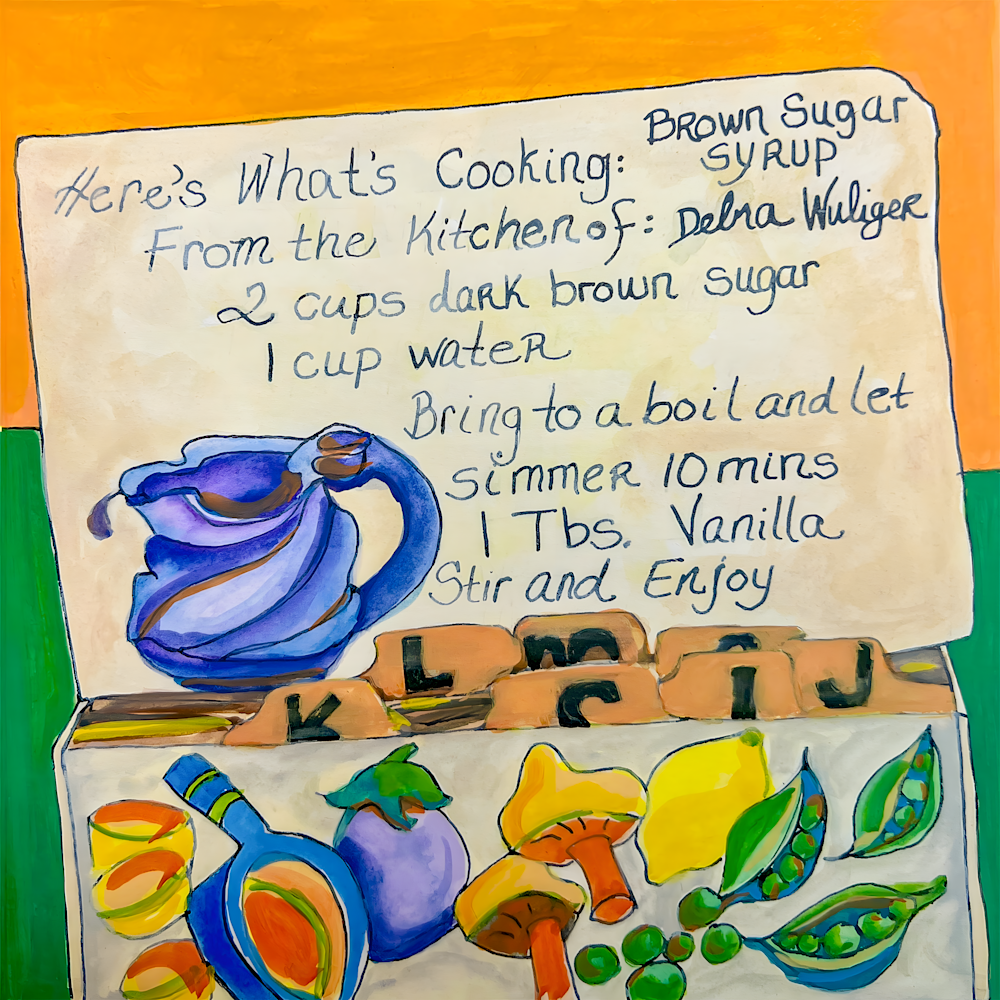 Here's What's Cooking: Brown Sugar
SYRUP
From the Kitchen of: Debra Wuliger
2 cups dark brown sugar
1 cup water
Bring to a boil and let
simmer 10 mins
1 Tbs. Vanilla
Stir and Enjoy
L m J
K C